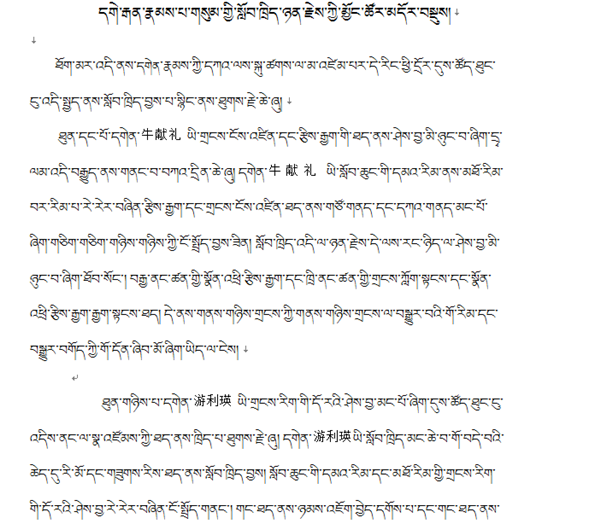 དགེ་རྒན་རྣམས་པ་གསུམ་གྱི་སློབ་ཁྲིད་ཉན་རྗེས་ཀྱི་མྱོང་ཚོར་མདོར་བསྡུས།
ཐོག་མར་འདི་ནས་དགེན་རྣམས་ཀྱི་དཀའ་ལས་སྐུ་ཚགས་ལ་མ་འཛེམ་པར་དེ་རིང་ཕྱི་དྲོར་དུས་ཚོད་ཐུང་
ངུ་འདི་སྤྱད་ནས་སློབ་ཁྲིད་བྱས་པ་སྙིང་ནས་ཐུགས་རྗེ་ཆེ་ཞུ།
ཐུན་དང་པོ་དགེན་牛献礼 ཡི་གྲངས་ངོས་འཛིན་དང་རྩིས་རྒྱག་གི་ཐད་ནས་ཤེས་བྱ་མི་ཉུང་བ་ཞིག་དྲྭ་
ལམ་འདི་བརྒྱུད་ནས་གནང་བ་བཀའ་དྲིན་ཆེ་ཞུ། དགེན་牛 献 礼 ཡི་སློབ་ཆུང་གི་དམའ་རིམ་ནས་མཐོ་རིམ་
བར་རིམ་པ་རེ་རེར་བཞིན་རྩིས་རྒྱག་དང་གྲངས་ངོས་འཛིན་ཐད་ནས་གཙོ་གནད་དང་དཀའ་གནད་མང་པོ་
ཞིག་གཅིག་གཅིག་གཉིས་གཉིས་ཀྱི་ངོ་སྤྲོད་བྱས་ཟིན། སློབ་ཁྲིད་འདི་ལ་ཉན་རྗེས་དེ་ལས་རང་ཉིད་ལ་ཤེས་བྱ་མི་
ཉུང་བ་ཞིག་ཐོབ་སོང་། བརྒྱ་ནང་ཚན་གྱི་སྣོན་འཕྲི་རྩིས་རྒྱག་དང་ཁྲི་ནང་ཚན་གྱི་གྲངས་ཀློག་སྟངས་དང་སྣོན་
འཕྲི་རྩིས་རྒྱག་རྒྱག་སྟངས་ཐད། དེ་ནས་གནས་གཉིས་གྲངས་ཀྱི་གནས་གཉིས་གྲངས་ལ་བསྒྱུར་བའི་གོ་རིམ་དང་
བསྒྱུར་བགོད་ཀྱི་གོ་དོན་ཞིབ་མོ་ཞིག་ཡིད་ལ་ངེས།
ཐུན་གཉིས་པ་དགེན་游利瑛 ཡི་གྲངས་རིག་གི་དོ་རའི་ཤེས་བྱ་མང་པོ་ཞིག་དུས་ཚོད་ཐུང་ངུ་
འདིས་ནང་ལ་སྣ་འཛོམས་ཀྱི་ཐད་ནས་ཁྲིད་པ་ཐུགས་རྗེ་ཆེ་ཞུ། དགེན་游利瑛ཡི་སློབ་ཁྲིད་མང་ཆེ་བ་གོ་བདེ་བའི་
ཆེད་དུ་རི་མོ་དང་གཟུགས་རིས་ཐད་ནས་སློབ་ཁྲིད་བྱས། སློབ་ཆུང་གི་དམའ་རིམ་དང་མཐོ་རིམ་གྱི་གྲངས་རིག་
གི་དོ་རའི་ཤེས་བྱ་རེ་རེར་བཞིན་ངོ་སྤྲོད་གནང་། གང་ཐད་ནས་ཉམས་འཇོག་བྱེད་དགོས་པ་དང་གང་ཐད་ནས་